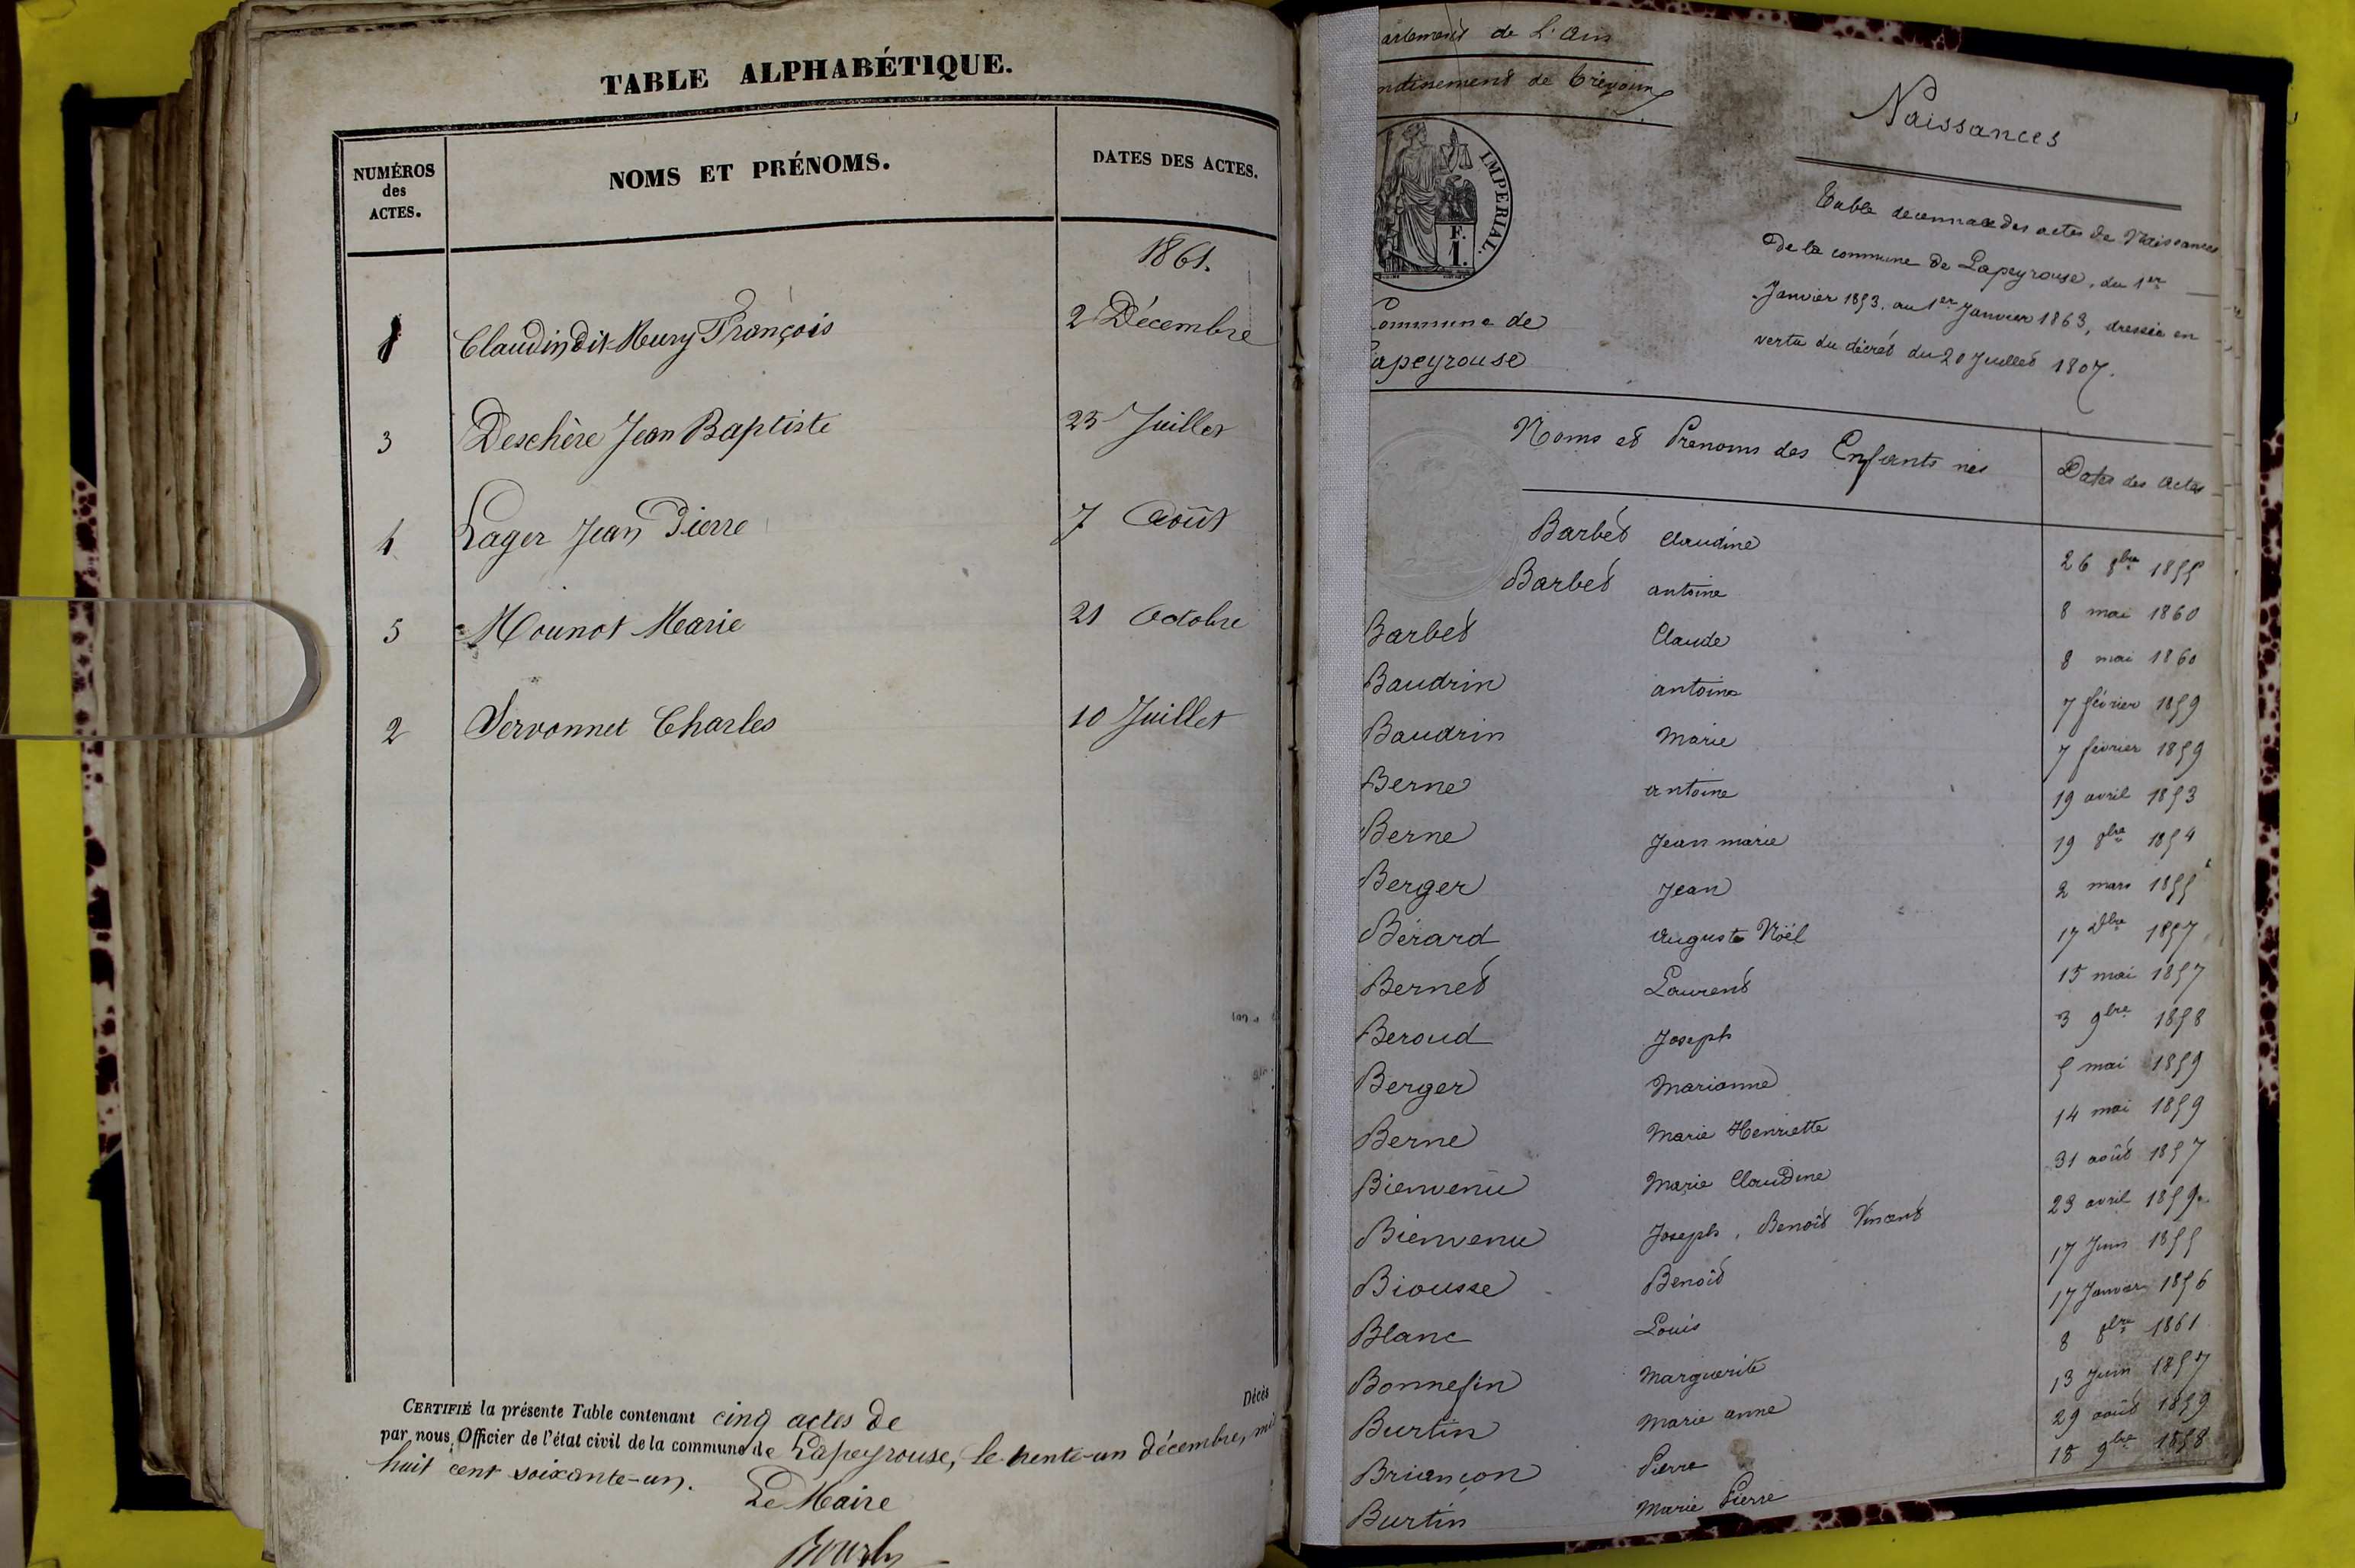 TABLE ALPHABÉTIQUE.
NUMÉROS des ACTES.
NOMS ET PRÉNOMS.
DATES DES ACTES.
1861.
1 Claudin dit Mury François 2 Décembre
3 Deschère Jean Baptiste 25 Juillet
4 Lager Jean Pierre 7 Août
5 Mounot Marie 21 Octobre
2 Servonnet Charles 10 Juillet
CERTIFIÉ la présente Table contenant cinq actes de Décès
par nous, Officier de l'état civil de la commune de Lapeyrouse, le trente-un décembre, mil
huit cent soixante-un.
Le Maire
artement de L'Ain
ndissement de Trévoux
IMPERIAL.
F.
1.
Commune de
Lapeyrouse
Naissances
Table decennale des actes de Naissances
De la commune de Lapeyrouse, du 1er
Janvier 1853. au 1er Janvier 1863, dressée en
vertu du décret du 20 Juillet 1807.
Noms et Prenoms des Enfants nés
Dates des Actes
Barbet Claudine 26 8bre 1855
Barbet antoine 8 mai 1860
Barbet Claude 8 mai 1860
Baudrin antoine 7 février 1859
Baudrin Marie 7 février 1859
Berne antoine 19 avril 1853
Berne Jean marie 19 8bre 1854
Berger Jean 2 mars 1855
Bérard Auguste Noël 17 Xbre 1857
Bernet Laurent 15 mai 1857
Beroud Joseph 3 9bre 1858
Berger Marianne 5 mai 1859
Berne Marie Henriette 14 mai 1859
Bienvenu Marie Claudine 31 août 1857
Bienvenu Joseph, Benoît Vincent 23 avril 1859
Biousse Benoît 17 Juin 1855
Blanc Louis 17 Janvier 1856
Bonnefin Marguerite 8 8bre 1861
Burtin Marie anne 13 Juin 1857
Briançon Pierre 29 août 1859
Burtin Marie Pierre 18 9bre 1858